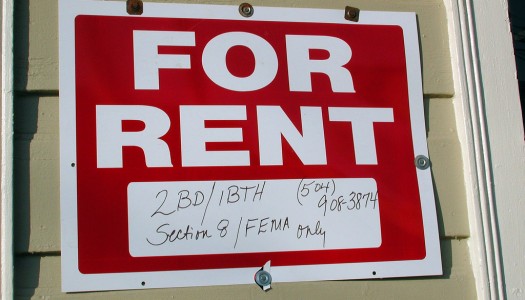 FOR
RENT
2BD/1BTH (504) 908-3874
Section 8/FEMA only